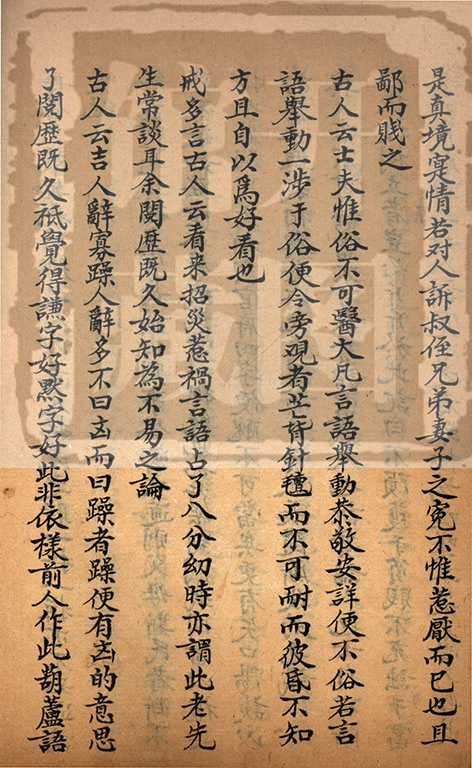 是真境寔情若对人訴叔侄兄弟妻子之寃不惟惹厭而已也且
鄙而賤之
古人云士夫惟俗不可醫大凡言語舉動恭敬安詳便不俗若言
語舉動一涉于俗便令旁观者芒背針氊而不可耐而彼昏不知
方且自以爲好看也
戒多言古人云看来招災惹禍言語占了八分幼時亦謂此老先
生常談耳余閱歷既久始知為不易之論
古人云吉人辭寡躁人辭多不曰凶而曰躁者躁便有凶的意思
了閱歷既久祇覺得謙字好默字好此非依樣前人作此葫蘆語